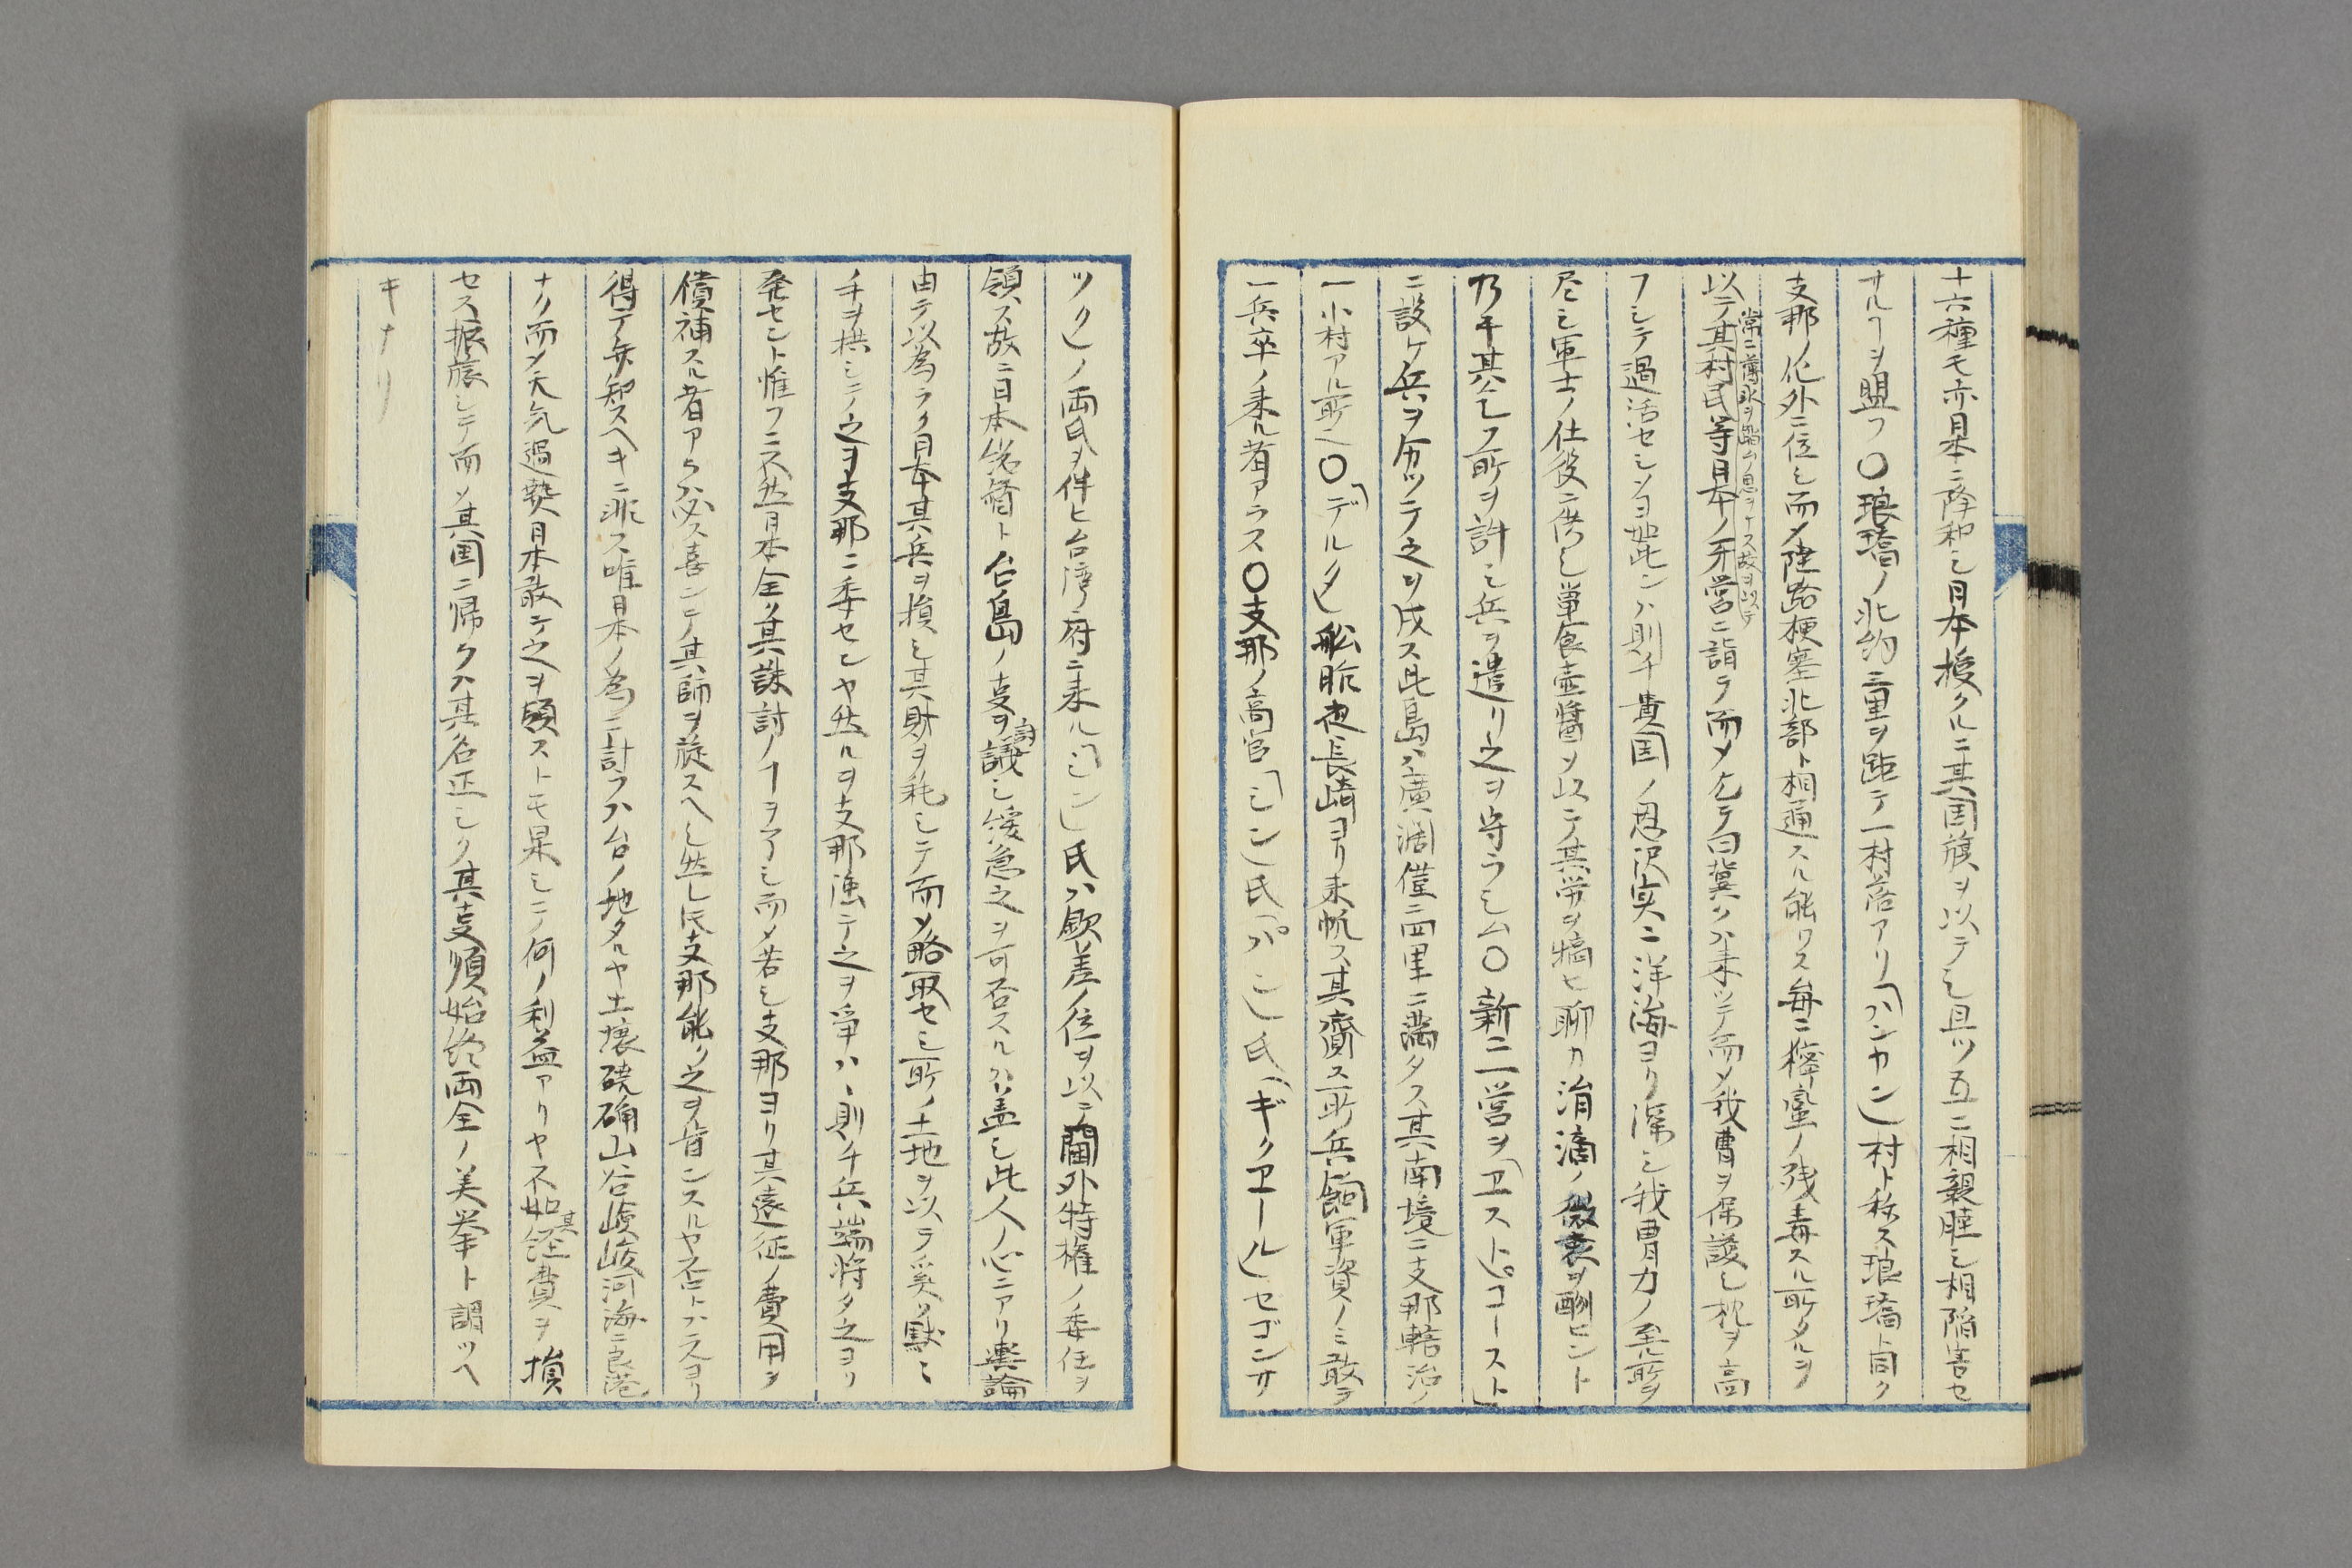 十六種モ亦日本ニ降和シ日本授クルニ其国旗ヲ以テシ且ツ互ニ相親睦シ相陥害セ
サルヿヲ盟フ〇琅𤩝ノ北約三里ヲ距テ一村落アリ「ハンカン」村ト称ス琅𤩝ト同ク
支那ノ化外ニ位シ而メ陸路梗塞北部ト相通スル能ワス毎ニ獰蛮ノ残毒スル所タルヲ
常ニ薄氷ヲ踏ムノ思ヲナス故ヲ以テ
以テ其村民等日本ノ牙営ニ詣ラ而メ乞テ曰冀クハ来ツテ而メ我曹ヲ保護シ枕ヲ高
フシテ過活セシメヨ如此ンハ則チ貴国ノ恩沢実ニ洋海ヨリ深シ我曹力ノ至ル所ヲ
尽シ軍士ノ仕役ニ供シ箪食壺醤ヲ以テ其労ヲ犒ヒ聊カ涓滴ノ微衷ヲ酬ヒント
乃チ其乞フ所ヲ許シ兵ヲ遣リ之ヲ守ラシム〇新ニ一営ヲ「ヱストピコースト」
ニ設ケ兵ヲ分ツテ之ヲ戍ス此島ハ廣濶僅ニ四里ニ満タス其南境ニ支那轄治ノ
一小村アル所〇「デルタ」舩昨夜長崎ヨリ来帆ス其齎ス所兵餉軍資ノミ敢テ
一兵卒ノ来ル者アラス〇支那ノ高官「シン」氏「パン」氏「ギクヱール」セゴンサ
ツク」ノ両氏ヲ伴ヒ台湾府ニ来ル「シン」氏ハ欽差ノ位ヲ以テ閫外特権ノ委任ヲ
領ス故ニ日本総督ト台島ノ事ヲ討議シ緩急之ヲ可否スルハ盖シ此人ノ心ニアリ輿論
由テ以為ラク日本其兵ヲ損シ其財ヲ耗シテ而メ略取セシ所ノ土地ヲ以テ奚ク獣シ
手ヲ拱シテ之ヲ支那ニ委センヤ然ルヲ支那強テ之ヲ争ハヽ則チ兵端将タ之ヨリ
発セント惟フニ不然日本全ク其誅討ノヿヲ了シ而メ若シ支那ヨリ其遠征ノ費用ヲ
償補スル者アラハ必ス喜ンテ其師ヲ旋スヘシ然レ𪜈支那能ク之ヲ肯ンスルヤ否トハ云ヨリ
得テ兵知スヘキニ非ス唯日本ノ為ニ計ラハ台ノ地タルヤ土壌磽确山谷嶮峻河海ニ良港
ナク而メ天気過熱日本敢テ之ヲ領ストモ果シテ何ノ利益アリヤ不如其経費ヲ損
セス振旅シテ而メ其国ニ帰クハ其名正シク其事順始終両全ノ美挙ト謂ツヘ
キナリ